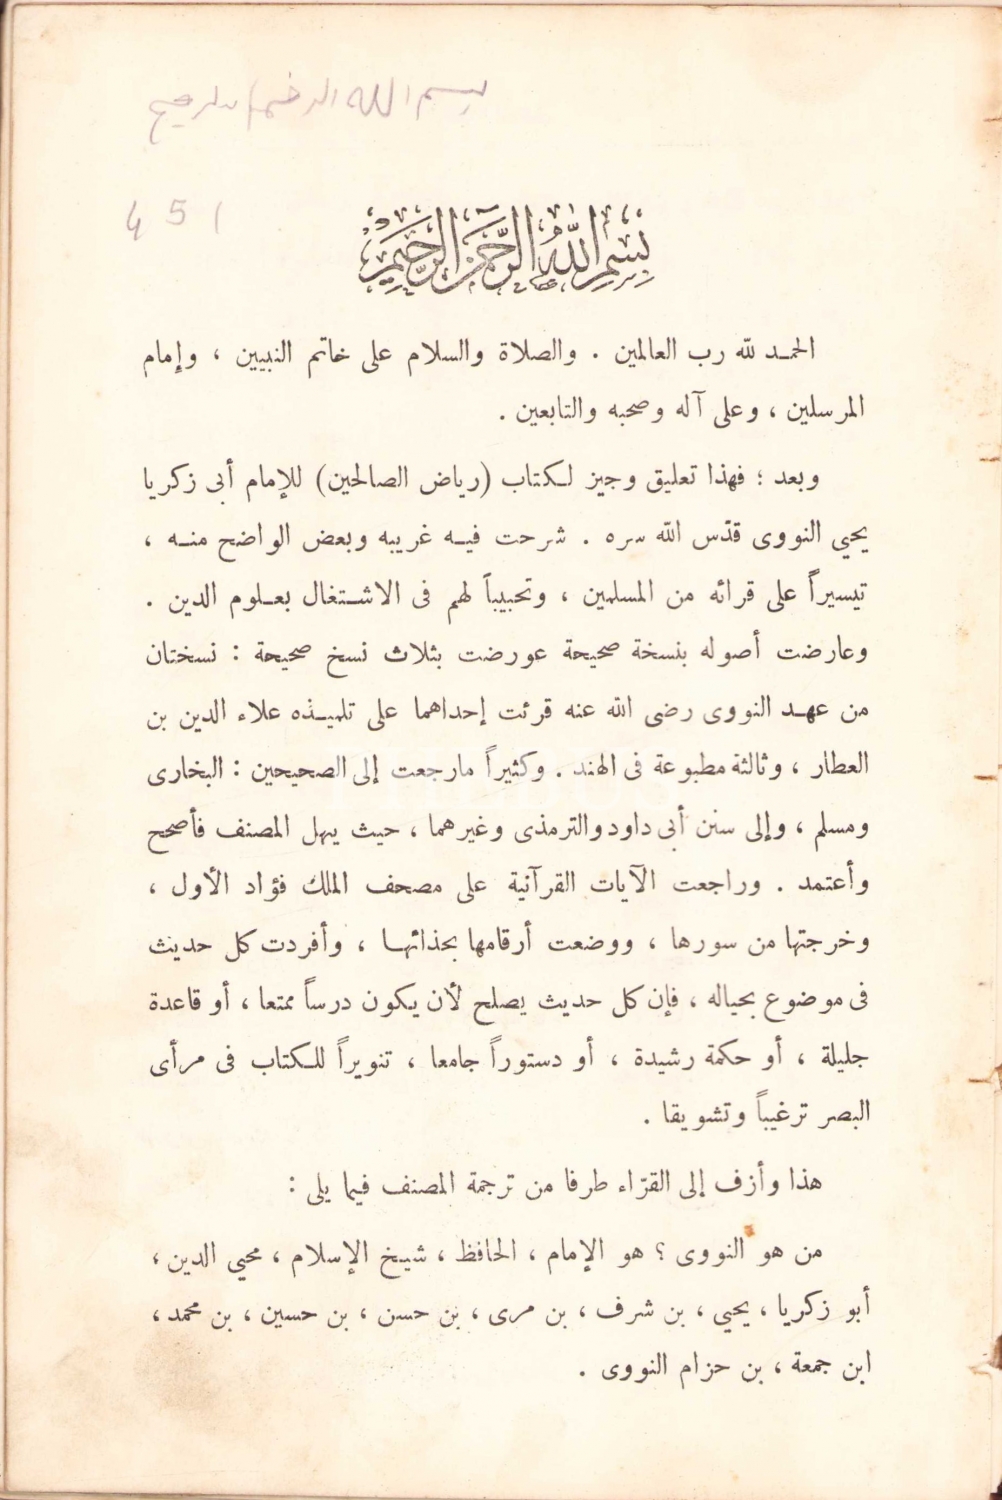 بسم الله الرحمن الرحيم
451
بسم الله الرحمن الرحيم
الحمد لله رب العالمين . والصلاة والسلام على خاتم النبيين ، وإمام
المرسلين ، وعلى آله وصحبه والتابعين .
وبعد ؛ فهذا تعليق وجيز لكتاب (رياض الصالحين) للإمام أبى زكريا
يحيي النووى قدّس الله سره . شرحت فيه غريبه وبعض الواضح منه ،
تيسيراً على قرائه من المسلمين ، وتحبيباً لهم فى الاشتغال بعلوم الدين .
وعارضت أصوله بنسخة صحيحة عورضت بثلاث نسخ صحيحة : نسختان
من عهد النووى رضى الله عنه قرئت إحداهما على تلميذه علاء الدين بن
العطار ، وثالثة مطبوعة فى الهند . وكثيراً مارجعت إلى الصحيحين : البخارى
ومسلم ، وإلى سنن أبى داود والترمذى وغيرهما ، حيث يهل المصنف فأصحح
وأعتمد . وراجعت الآيات القرآنية على مصحف الملك فؤاد الأول ،
وخرجتها من سورها ، ووضعت أرقامها بحذائها ، وأفردت كل حديث
فى موضوع بحياله ، فإن كل حديث يصلح لأن يكون درساً ممتعا ، أو قاعدة
جليلة ، أو حكمة رشيدة ، أو دستوراً جامعا ، تنويراً للكتاب فى مرأى
البصر ترغيباً وتشويقا .
هذا وأزف إلى القرّاء طرفا من ترجمة المصنف فيما يلى :
من هو النووى ؟ هو الإمام ، الحافظ ، شيخ الإسلام ، محيي الدين ،
أبو زكريا ، يحيي ، بن شرف ، بن مرى ، بن حسن ، بن حسين ، بن محمد ،
ابن جمعة ، بن حزام النووى .